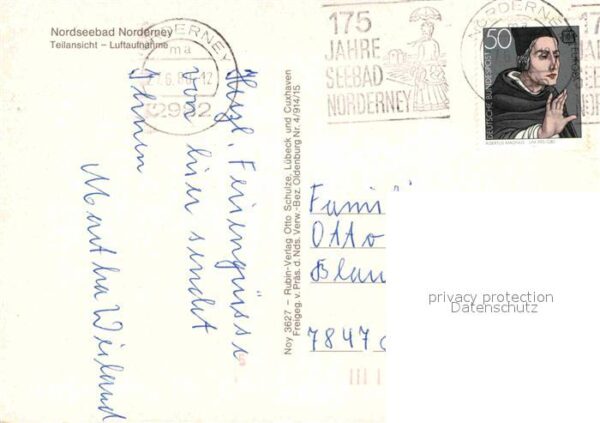 Nordseebad Norderney
Teilansicht – Luftaufnahme
NORDERNEY
ma
2982
175
JAHRE
SEEBAD
NORDERNEY
NORDERNEY
ma
50
DEUTSCHE BUNDESPOST
ALBERTUS MAGNUS
Herzl. Feriengrüsse
von hier sendet
Ihnen
Martha Wieland
Noy 3627 – Rubin-Verlag Otto Schulze, Lübeck und Cuxhaven
Freigeg. v. Präs. d. Nds. Verw.-Bez. Oldenburg Nr. 4/914/15
Fami
Otto
Blau
7847
privacy protection
Datenschutz